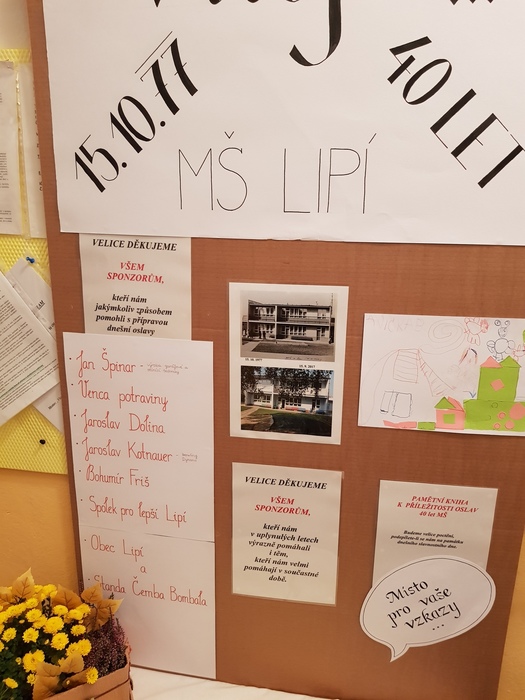 15.10.77
40 LET
MŠ LIPÍ
VELICE DĚKUJEME
VŠEM
SPONZORŮM,
kteří nám
jakýmkoliv způsobem
pomohli s přípravou
dnešní oslavy
Jan Špinar
Venca potraviny
Jaroslav Dolina
Jaroslav Kotnauer
Bohumír Friš
Spolek pro lepší Lipí
Obec Lipí
a
Standa Čemba Bombala
VELICE DĚKUJEME
VŠEM
SPONZORŮM,
kteří nám
v uplynulých letech
výrazně pomáhali
i těm,
kteří nám velmi
pomáhají v součastné
době.
PAMĚTNÍ KNIHA
K PŘÍLEŽITOSTI OSLAV
40 let MŠ
Budeme velice poctěni,
podepíšete-li se nám na památku
dnešního slavnostního dne.
Místo
pro vaše
vzkazy
...